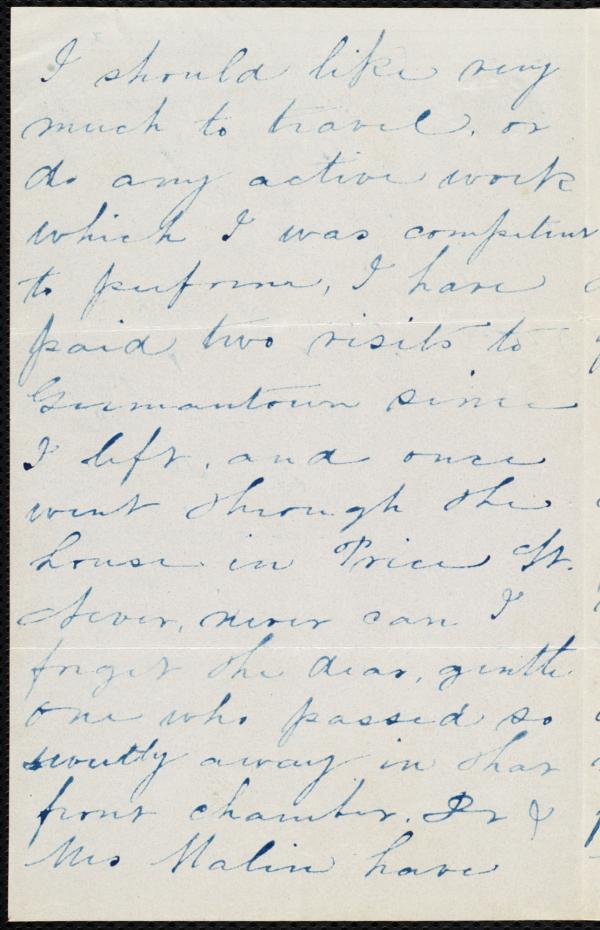 I should like very
much to travel, or
do any active work
which I was competent
to perform, I have
paid two visits to
Germantown since
I left, and once
went through the
house in Price St.
Never, never can I
forget the dear, gentle
one who passed so
sweetly away in that
front chamber. Dr &
Mrs Malin have